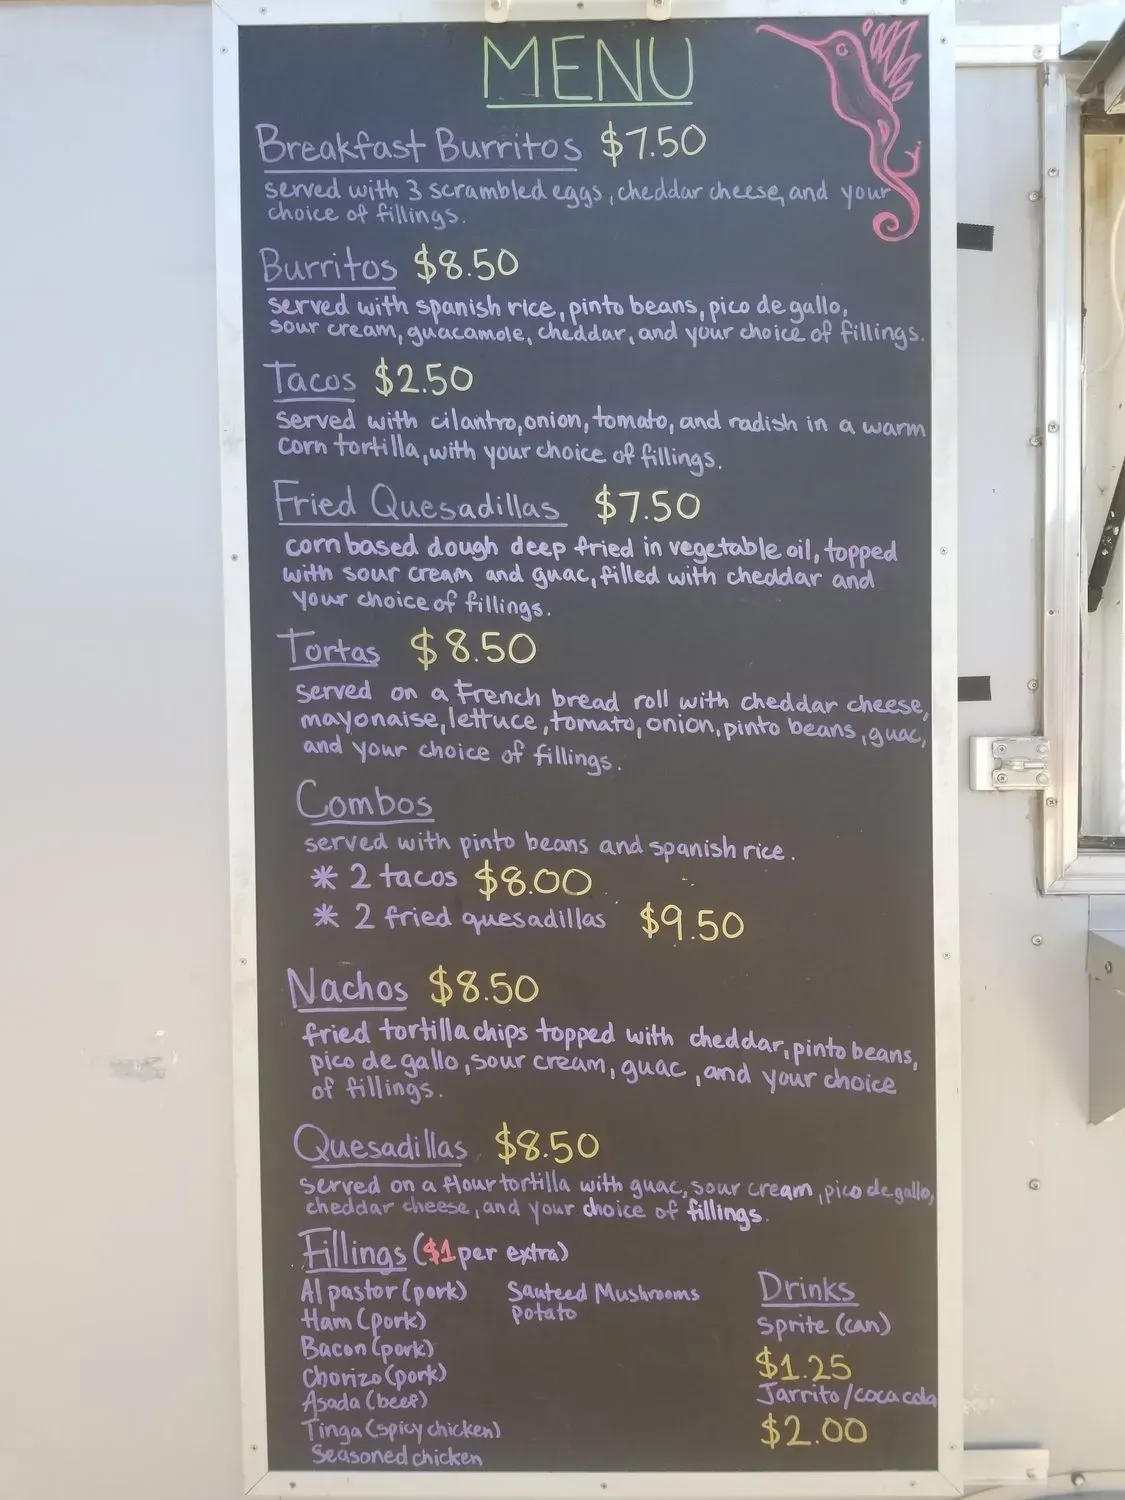 MENU
Breakfast Burritos $7.50
served with 3 scrambled eggs, cheddar cheese, and your
choice of fillings.
Burritos $8.50
served with spanish rice, pinto beans, pico de gallo,
sour cream, guacamole, cheddar, and your choice of fillings.
Tacos $2.50
served with cilantro, onion, tomato, and radish in a warm
corn tortilla, with your choice of fillings.
Fried Quesadillas $7.50
corn based dough deep fried in vegetable oil, topped
with sour cream and guac, filled with cheddar and
your choice of fillings.
Tortas $8.50
served on a French bread roll with cheddar cheese,
mayonaise, lettuce, tomato, onion, pinto beans, guac,
and your choice of fillings.
Combos
served with pinto beans and spanish rice.
* 2 tacos $8.00
* 2 fried quesadillas $9.50
Nachos $8.50
fried tortilla chips topped with cheddar, pinto beans,
pico de gallo, sour cream, guac, and your choice
of fillings.
Quesadillas $8.50
served on a flour tortilla with guac, sour cream, pico de gallo,
cheddar cheese, and your choice of fillings.
Fillings ($1 per extra)
Al pastor (pork)
Ham (pork)
Bacon (pork)
Chorizo (pork)
Asada (beef)
Tinga (spicy chicken)
Seasoned chicken
Sauteed Mushrooms
potato
Drinks
Sprite (can)
$1.25
Jarrito/coca cola
$2.00